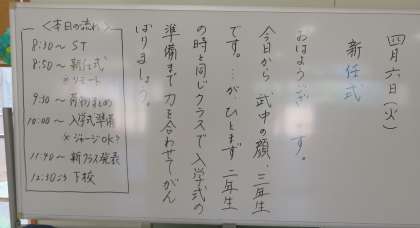 四月六日(火)
新任式
おはようございます。
今日から 武中の顔、三年生
です。…がひとまず 二年生
の時と同じクラスで入学式の
準備まで 力を合わせてがん
ばりましょう。
＜本日の流れ＞
8:30〜 ST
8:50〜 新任式
※リモート
9:30〜 荷物まとめ
10:00〜 入学式準備
※ジャージOK?
11:40〜 新クラス発表
12:30ごろ 下校